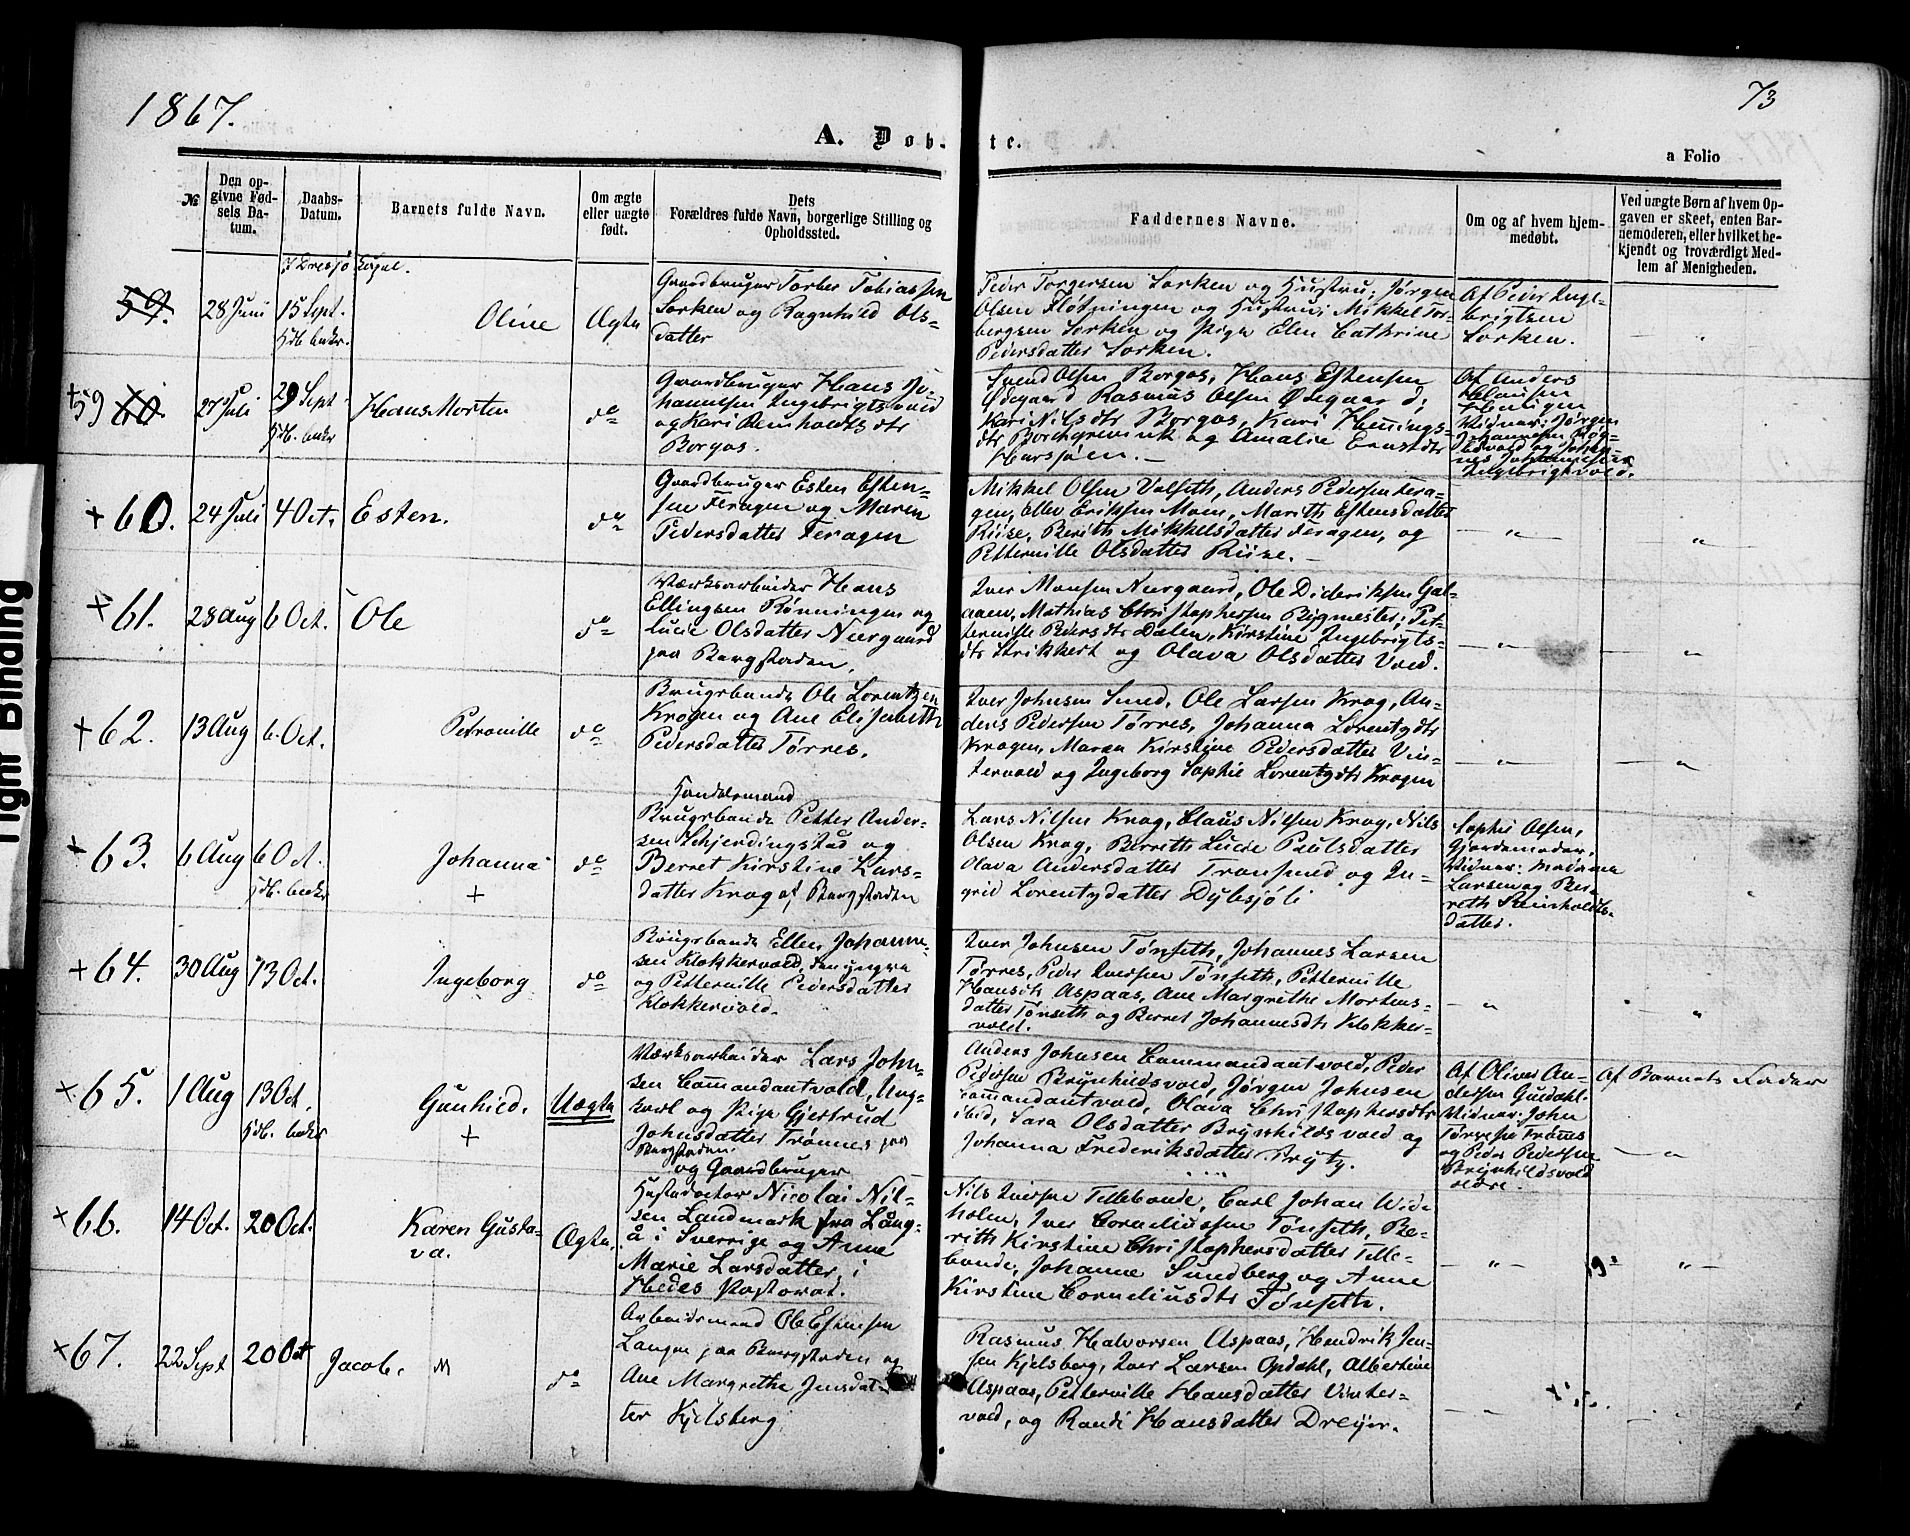 1867.
73
A. Døb
te.
a Folio
№
Den op-
givne Fød-
sels Da-
tum.
Daabs-
Datum.
Barnets fulde Navn.
Om ægte
eller uægte
født.
Dets
Forældres fulde Navn, borgerlige Stilling og
Opholdssted.
Faddernes Navne.
Om og af hvem hjem-
medøbt.
Ved uægte Børn af hvem Op-
gaven er skeet, enten Bar-
nemoderen, eller hvilket be-
kjendt og troværdigt Med-
lem af Menigheden.
59.
28 Juni
15 Sept.
Hdb. bekr.
Oline
Ægte
Gaardbruger Torber Tobiassen
Sorken og Ragnhild Ols-
datter
Peder Torgersen Sorken og Hustru; Jørgen
Olsen Fløtningen og Hustru; Mikkel Tor-
bergsen Sorken og Pige Elen Cathrine
Pedersdatter Sorken.
Af Peder Inge-
brigtsen
Sorken.
+59 60.
27 Juli
29 Sept.
Hdb. bekr
Hans Morten
do
Gaardbruger Hans Jo-
hannesen Ingebrigtsvold
og Kari Reinholdts dtr
Borgos.
Svend Olsen Borgos, Hans Estensen
Ødegaard Rasmus Olsen Ødegaard;
Kari Nilsdtr Borgos, Kari Hennings-
dtr Borchgrevink og Amalie dtr
Harsjøen. -
Af Anders
Henningen
Vidner: Jørgen
Johannesen
vold og Johan-
nes Johannesen
Ingebrigtsvold.
+60.
24 Juli
4 Oct.
Esten.
do
Gaardbruger Esten Esten-
sen Feragen og Maren
Pedersdatter Feragen
Mikkel Olsen Volseth, Anders Pedersen Fera-
gen, Eller Eriksen Moen, Marith Estensdatter
Riise, Berith Mikkelsdatter Feragen, og
Petternille Olsdatter Riise. -
+61.
28 Aug
6 Oct.
Ole
do
Værksarbeider Hans
Ellingsen Rønningen og
Lucie Olsdatter Nergaard
paa Bergstaden.
Iver Monsen Nergaard, Ole Dideriksen Gal-
aaen, Mathias Christophersen Bygmester; Pet-
ternille Pedersdtr Dalen, Kirstine Ingebrigts-
dtr Strikkert og Olava Olsdatter Vold.
+62.
13 Aug
6. Oct.
Petronille
do
Brugsbonde Ole Lorentzen
Krogen og Ane Elisabeth
Pedersdatter Tørres.
Iver Johnsen Smed, Ole Larsen Krog, An-
ders Pedersen Tørres, Johanna Lorentzdtr
Krogen, Maren Kirstine Pedersdatter Vin-
tervold og Ingeborg Sophie Lorentzdtr Krogen
+63.
6 Aug
6 Oct.
Hdb. bekr
Johanna
+
do
Handelsmand
Brugsbonde Petter Ander-
sen Schjerdingstad og
Berret Kirstine Lars-
datter Krog af Bergstaden
Lars Nilsen Krog, Claus Nilsen Krog, Nils
Olsen Krog, Berreth Lucie Paulsdatter
Olava Andersdatter Tronsmed og In-
grid Lorentzdatter Dybesjøli
Sophie Olsen,
Gjordemoder,
Vidner:
Larsen og Ber-
reth Reinholdts-
datter.
+64.
30 Aug
13 Oct.
Ingeborg
do
Brugsbonde Ellen Johanne-
sen Klokkervold, den yngre
og Petternille Pedersdatter
Klokkervold.
Iver Johnsen Tønseth, Johannes Larsen
Tørres, Peder Iversen Tønseth, Petternille
Hansdtr Aspaas, Ane Margrethe Mortens-
datter Tønseth og Berret Johannesdtr Klokker-
vold.
65.
1 Aug
13 Oct.
Hdb. bekr
Gunhild.
+
Uægte
Værksarbeider Lars John-
sen Commandantvold, Ung-
karl og Pige Gjertrud
Johnsdatter Trønnes paa
Bergstaden.
Anders Johnsen Commandantvold, Peder
Pedersen Brynhildsvold, Jørgen Johnsen
Commandantvold, Olava Christophersdtr
ibid, Sara Olsdatter Brynhildsvold og
Johanna Frederiksdatter Prytz.
Af Oliver An-
dersen Guldahl.
Vidner: John
og Peder Pedersen
Brynhildsvold
Af Barnets Fader
66.
14 Oct.
20 Oct.
Karen Gusta-
va.
Ægte.
og Gaardbruger
Nicolai Nil-
sen Landmark fra Lång-
å i Sverrige og Anne
Marie Larsdatter, i
Hedes Pastorat.
Nils Iversen Tillebonde, Carl Johan Wid-
holm, Iver Corneliussen Tønseth, Be-
rith Kirstine Christophersdatter Tille-
bonde, Johanne Sundberg og Anne
Kirstine Corneliusdtr Tønseth.
67.
22 Sept
20 Oct
Jacob.
do
Arbeidsmand Ole Estensen
Langen paa Bergstaden og
Ane Margrethe Jensdat-
ter Kjelsberg.
Rasmus Halvorsen Aspaas, Hendrik Jen-
sen Kjelsberg, Iver Larsen Opdahl, Albertine
Aspaas, Petternille Hansdatter Vinter-
vold, og Randi Hansdatter Dreyer.
Tight Binding